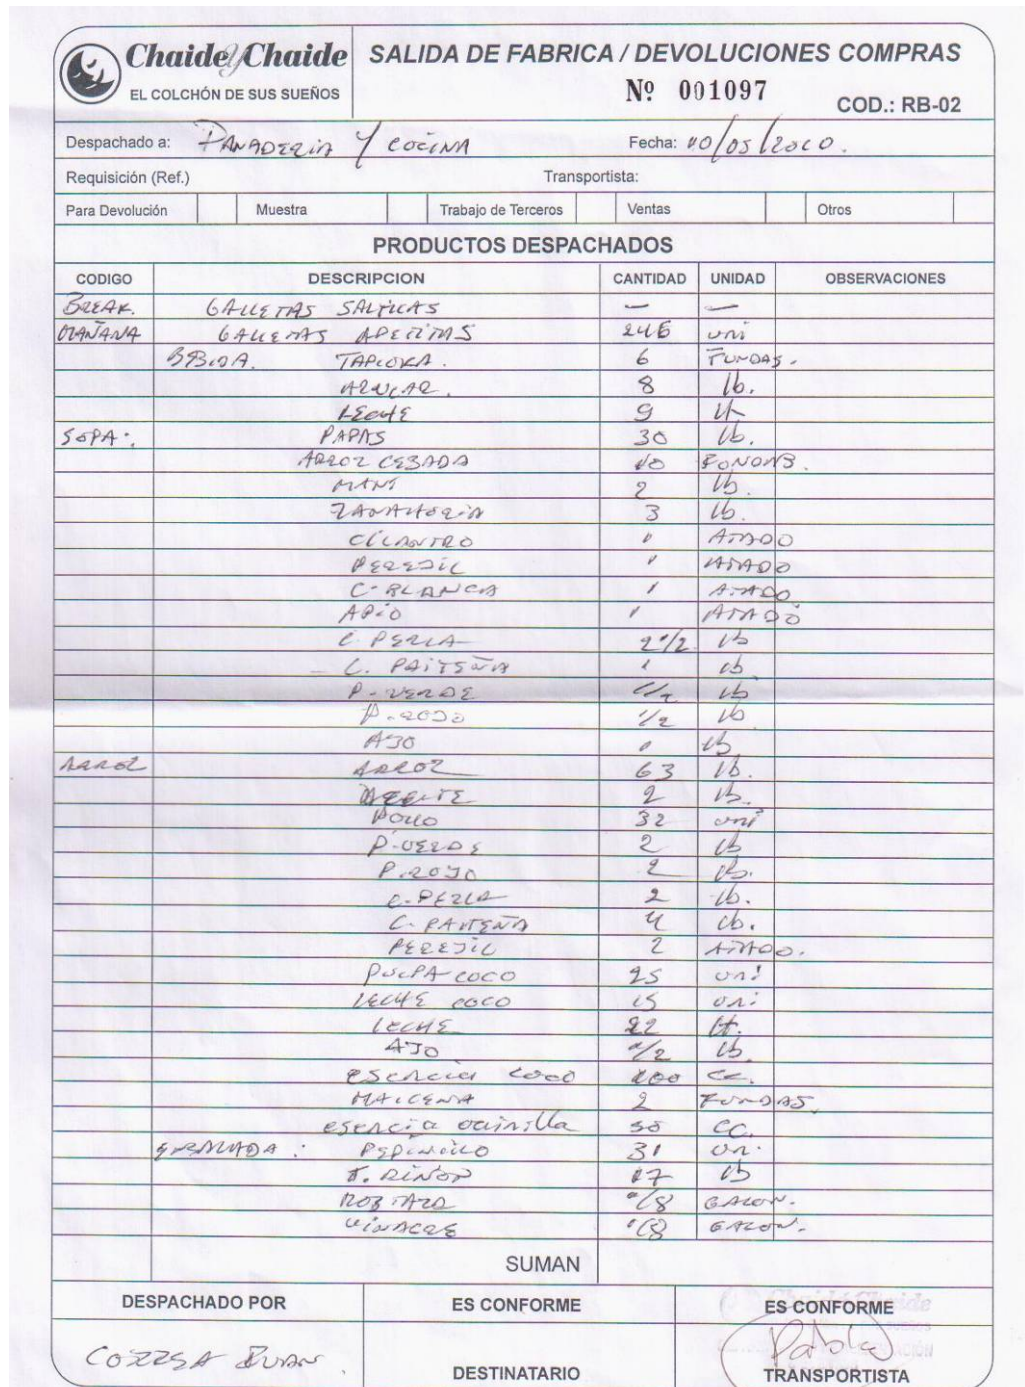 Chaide y Chaide SALIDA DE FABRICA / DEVOLUCIONES COMPRAS
EL COLCHÓN DE SUS SUEÑOS Nº 001097 COD.: RB-02
Despachado a: PANADERIA Y COCINA Fecha: 10/05/2010.
Requisición (Ref.) Transportista:
Para Devolución Muestra Trabajo de Terceros Ventas Otros
PRODUCTOS DESPACHADOS
CODIGO DESCRIPCION CANTIDAD UNIDAD OBSERVACIONES
BREAK. GALLETAS SALTICAS — —
MAÑANA GALLETAS APETITAS 246 uni
BEBIDA. TAPIOKA. 6 FUNDAS.
AZUCAR. 8 lb.
LECHE 9 lt
SOPA. PAPAS 30 lb.
ARROZ CEBADA 10
MANI 2 lb.
ZANAHORIA 3 lb.
CILANTRO 1 ATADO
PEREJIL 1 ATADO
C. BLANCA 1 ATADO
APIO 1 ATADO
C. PERLA 2 1/2 lb
C. PAITEÑA 1 lb
P. VERDE 1/2 lb
P. ROJO 1/2 lb
AJO 1 lb
ARROZ ARROZ 63 lb.
ACEITE 2 lb.
POLLO 32 uni
P. VERDE 2 lb
P. ROJO 2 lb.
C. PERLA 2 lb.
C. PAITEÑA 4 lb.
PEREJIL 2 ATADO.
PULPA COCO 25 uni
LECHE COCO 15 uni
LECHE 22 lt.
AJO 1/2 lb
esencia coco 100 cc.
MAICENA 2 FUNDAS.
esencia vainilla 50 cc.
ENSALADA: PEPINILLO 31 un.
T. RIÑON 17 lb
1/8 GALON.
VINAGRE 1/8 GALON.
SUMAN
DESPACHADO POR ES CONFORME ES CONFORME
Pablo
DESTINATARIO TRANSPORTISTA